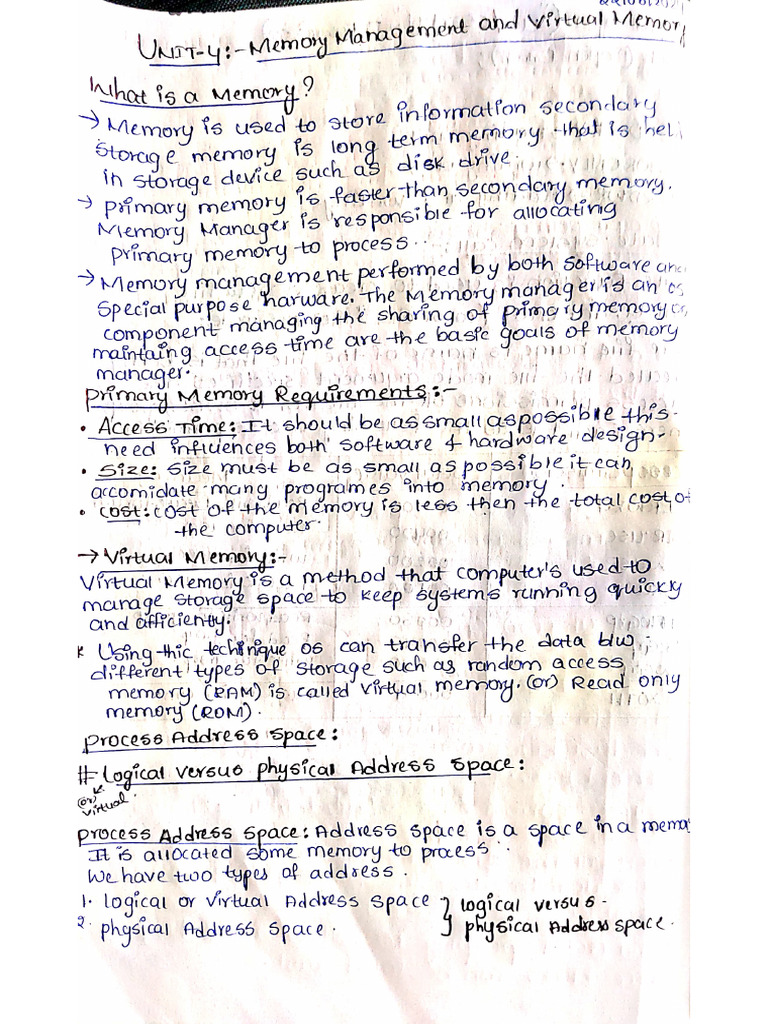 UNIT-4:- Memory Management and Virtual Memor
What is a Memory?
→ Memory is used to store information secondary
storage memory is long term memory that is hel
in storage device such as disk drive.
→ primary memory is faster than secondary memory.
Memory Manager is responsible for allocating
primary memory to process..
→ Memory management performed by both software and
special purpose harware. The Memory manager is an os
component managing the sharing of primary memory
maintaing access time are the basic goals of memory
manager.
primary Memory Requirements:-
• Access Time: It should be as small as possible this
need influences both software & hardware design-
• Size: size must be as small as possible it can
accomidate many programes into memory.
• cost: cost of the memory is less then the total cost of
the computer.
→ Virtual Memory:-
Virtual Memory is a method that computer's used to
manage storage space to keep systems running quickly
and afficiently.
* Using thic technique os can transfer the data b/w
different types of storage such as random access
memory (RAM) is called virtual memory. (or) Read only
memory (ROM).
process Address space:
# logical versus physical Address space:
(or)
virtual
process Address space: Address space is a space in a memo
It is allocated some memory to process.
We have two types of address.
1. logical or virtual Address space } logical versus
2. physical Address space. } physical Address space.